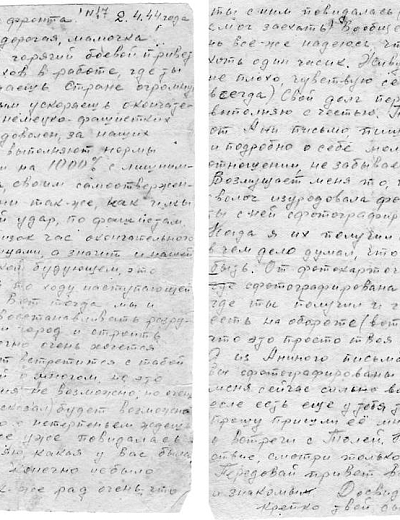 фронта. №17 2.4.44 года
дорогая, мамочка!
горячий боевой привет
хов в работе, где ты
аешь стране огромную
ым ускоряешь окончате
немецко-фашистких
доволен, за наших
выполняют нормы
и на 1000% с лишним
своим самоотвержен
ни так-же, как и мы
й удар, по фашистам
изок час окончательного
а значит и нашей
кой будующем, это
по ходу наступающей
Вот тогда мы и
восстанавливать разру
и город и строить
очень хочется
встретится с тобой
о многом, но это
не возможно, но очень
будет возможна
с нетерпеньем
же уже повидалась
какая у вас была
Конечно небыло
же рад очень, что
ты с ним повидалась (
смог заехать). Вообще
но всё-же надеюсь, что
хоть один часик. Живу
не плохо, чувствую се
всегда) Свой долг пер
выполняю с честью. П
от Ани письмо, пиш
и подробно о себе, мол
отношении, не забывае
Возмущает меня то, ч
изуродовала фо
ты с ней сфотографир
Когда я их получил
в чём дело думал, что
быть. От фотокарточ
где сфотографирована
где ты получил и
есть на обороте (вот
что это просто твоя
Из Аниного письма
бы сфотографированы
меня сейчас сильно
если есть ещё у тебя
прошу пришли её мн
встречи с Толей.
ствие, смотри только
Передовай привет в
и знакомым Досвид
крепко твой